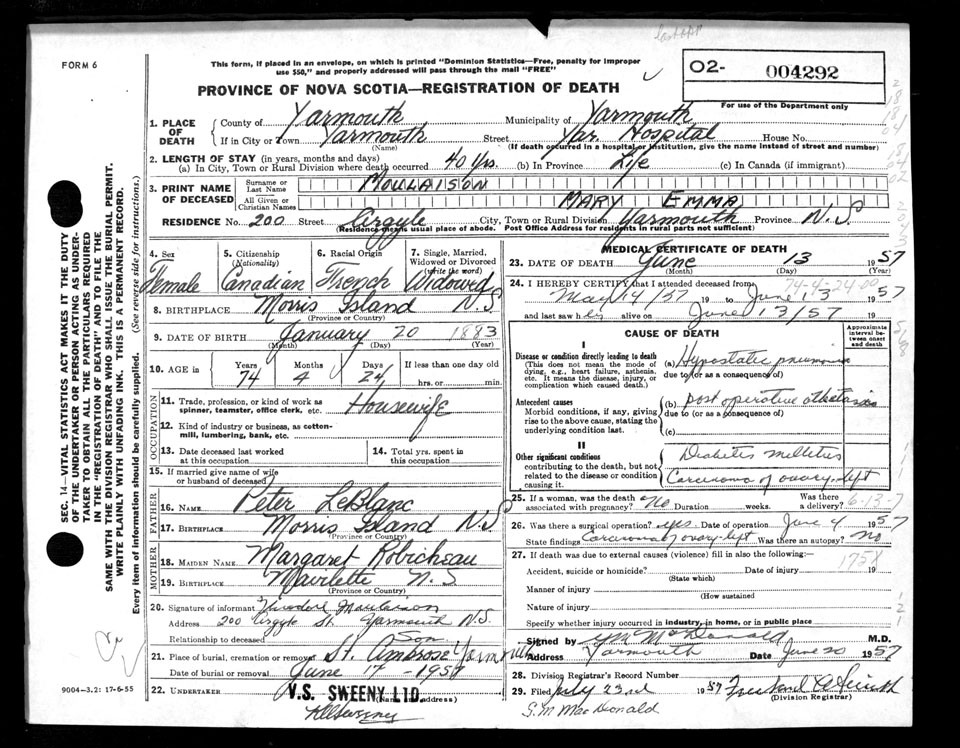 FORM 6
This form, if placed in an envelope, on which is printed "Dominion Statistics—Free, penalty for improper
use $50," and properly addressed will pass through the mail "FREE"
O2- 004292
For use of the Department only
PROVINCE OF NOVA SCOTIA—REGISTRATION OF DEATH
1. PLACE OF DEATH { County of Yarmouth Municipality of Yarmouth
If in City or Town Yarmouth Street Yar. Hospital House No.
(Name) (If death occurred in a hospital or institution, give the name instead of street and number)
2. LENGTH OF STAY (in years, months and days)
(a) In City, Town or Rural Division where death occurred 40 Yrs. (b) In Province Life (c) In Canada (if immigrant)
3. PRINT NAME OF DECEASED { Surname or Last Name MOULAISON
All Given or Christian Names MARY EMMA
RESIDENCE No. 200 Street Argyle City, Town or Rural Division Yarmouth Province N.S
(Residence means usual place of abode. Post Office Address for residents in rural parts not sufficient)
4. Sex Female
5. Citizenship (Nationality) Canadian
6. Racial Origin French
7. Single, Married, Widowed or Divorced (write the word) Widowed
8. BIRTHPLACE Morris Island N.S
(Province or Country)
9. DATE OF BIRTH January 20 1883
(Month) (Day) (Year)
10. AGE in Years 74 Months 4 Days 24 If less than one day old
hrs. or min.
OCCUPATION
11. Trade, profession, or kind of work as
spinner, teamster, office clerk, etc. Housewife
12. Kind of industry or business, as cotton-
mill, lumbering, bank, etc.
13. Date deceased last worked
at this occupation
14. Total yrs. spent in
this occupation
15. If married give name of wife
or husband of deceased
FATHER
16. NAME Peter LeBlanc
17. BIRTHPLACE Morris Island N.S
(Province or Country)
MOTHER
18. MAIDEN NAME Margaret Robicheau
19. BIRTHPLACE Mavilette N.S
(Province or Country)
20. Signature of informant Moulaison
Address 200 Argyle St. Yarmouth N.S.
Relationship to deceased Son
21. Place of burial, cremation or removal St. Ambrose Yarmouth
Date of burial or removal June 17 - 1957
22. UNDERTAKER V.S. SWEENY LTD.
(Name and address)
MEDICAL CERTIFICATE OF DEATH
23. DATE OF DEATH June 13 1957
(Month) (Day) (Year)
24. I HEREBY CERTIFY that I attended deceased from
May 14/57 19 to June 13 1957
and last saw her alive on June 13/57 19
CAUSE OF DEATH
Approximate interval between onset and death
I
Disease or condition directly leading to death
(This does not mean the mode of
dying, e.g., heart failure, asthenia,
etc. It means the disease, injury, or
complication which caused death.)
(a) Hypostatic pneumonia
due to (or as a consequence of)
Antecedent causes
Morbid conditions, if any, giving
rise to the above cause, stating the
underlying condition last.
(b) post operative
due to (or as a consequence of)
(c)
II
Other significant conditions
contributing to the death, but not
related to the disease or condition
causing it.
Diabetis mellitus
Carcinoma of ovary-left
25. If a woman, was the death associated with pregnancy? No Duration weeks. Was there a delivery?
26. Was there a surgical operation? yes Date of operation June 4 1957
State findings Carcinoma of ovary-left Was there an autopsy? No
27. If death was due to external causes (violence) fill in also the following:—
Accident, suicide or homicide? Date of injury 19
(State which)
Manner of injury
(How sustained)
Nature of injury
Specify whether injury occurred in industry, in home, or in public place
Signed by MacDonald M.D.
Address Yarmouth Date June 20 1957
28. Division Registrar's Record Number
29. Filed July 23rd 1957
(Division Registrar)
S.M MacDonald
9004-3.2: 17-6-55
SEC. 14—VITAL STATISTICS ACT MAKES IT THE DUTY
OF THE UNDERTAKER OR PERSON ACTING AS UNDER-
TAKER TO OBTAIN ALL THE PARTICULARS REQUIRED
IN THE "REGISTRATION OF DEATH" AND TO FILE THE
SAME WITH THE DIVISION REGISTRAR WHO SHALL ISSUE THE BURIAL PERMIT.
WRITE PLAINLY WITH UNFADING INK. THIS IS A PERMANENT RECORD.
Every item of information should be carefully supplied. (See reverse side for instructions.)